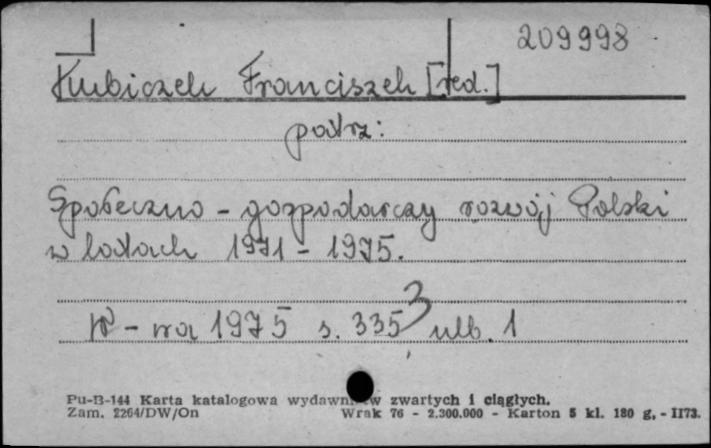 209998
Kubiczek Franciszek [red.]
patrz:
Społeczno - gospodarczy rozwój Polski
w latach 1971 - 1975.
W - wa 1975 s. 335 3 nlb. 1
Pu-B-144 Karta katalogowa wydawn w zwartych i ciągłych.
Zam. 2264/DW/On Wrak 76 - 2.300.000 - Karton 5 kl. 180 g. - II73.